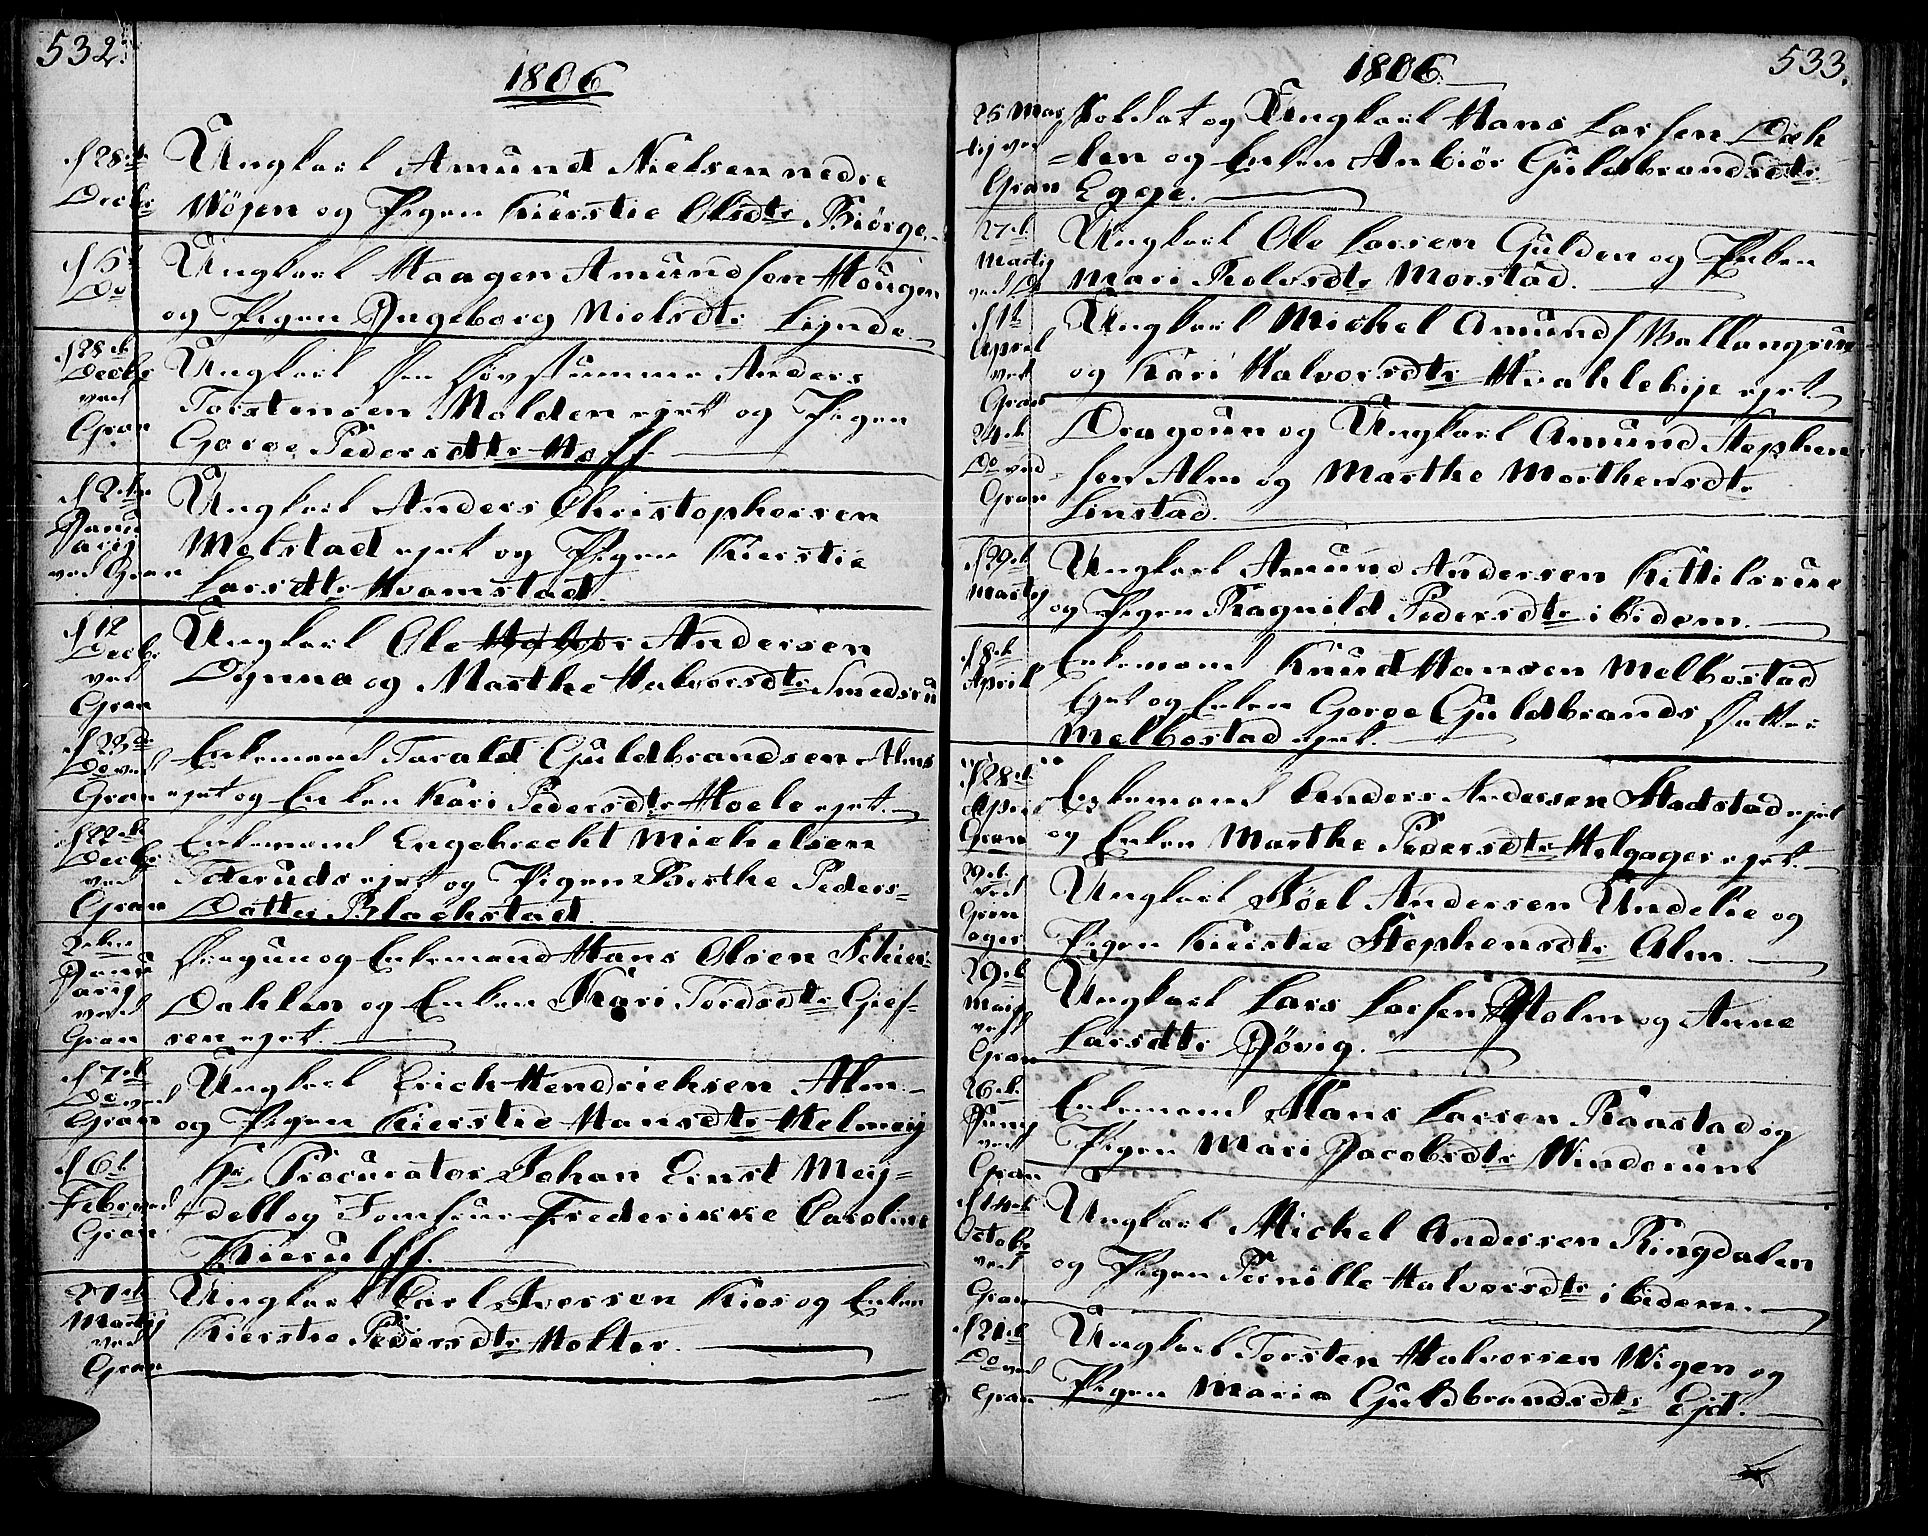 532.
1806
d 28de Decbr Ungkarl Amund Nielsen nedre
Wøjen og Pigen Kierstie Olsdtr Biørge.
d 5t Do Ungkarl Haagen Amundsen Hougen
og Pigen Ingeborg Nielsdtr Lynde
d 28de Decbr ved Gran Ungkarl den døvstumme Anders
Torstensen Molden ejet og Pigen
Goroe Pedersdtr Hoff
d 2den Januarij ved Gran Ungkarl Anders Christophersen
Melstad ejet og Pigen Kierstie
Larsdtr Hvamstad.
d 12 Decbr ved Gran Ungkarl Ole Andersen
Dynna og Marthe Halvorsdtr Smedsru
d 23de Do ved Gran Enkemand Tarald Guldbrandsen Alms
ejet og Enken Kari Pedersdtr Hoele ejet.
d 22de Decbr ved Gran Enkemand Engebrecht Michelsen
ejet og Pigen Berthe Peders-
Datter Blachstad.
2den Januarij ved Gran Dragun og Enkemand Hans Olsen Schier-
Dahlen og Enken Kari Tordsdtr Gies-
sen ejet.
d 7de Do ved Gran Ungkarl Erich Hendrichsen Alm
og Pigen Kierstie Hansdtr Helmeij
d 6t Febr ved Gran Hr Procurator Johan Einst Meij-
dell og Jomfrue Frederikke Caroline
Kierulff.
27de Martij ved Gran Ungkarl Carl Iversen Kios og Enken
Kierstie Pedersdtr Molter.
1806.
533.
25 Martij ved Gran Soldat og Ungkarl Hans Larsen Dæh-
len og Enken Anbiør Guldbrandsdtr
Egge.
27de Martij ved Do Ungkarl Ole Larsen Gulden og Enken
Mari Rolvsdtr Morstad.
d 1t April ved Gran Ungkarl Michel Amunds Ballangrun
og Kari Halvorsdtr Hvahlebye ejet
24de Do ved Gran Dragoun og Ungkarl Amund Stephen
sen Alm og Marthe Morthensdtr
Linstad.
d 29de Martij Ungkarl Amund Andersen Kittilsrue
og Pigen Ragnild Pedersdtr ibidem.
d 8de April Enkemand Knud Hansen Melbostad
Ejet og Enken Goroe Guldbrands Datter
Melbostad ejet.
d 28de April Gran Enkemand Anders Andersen Stadstad ejet
og Enken Marthe Pedersdtr Helgager ejet.
29de ved Gran Ungkarl Joel Andersen Undelie og
Pigen Kierstie Stephensdtr Alm.
29de Maij ved Gran Ungkarl Lars Larsen Holm og Anne
Larsdtr Røvig.
26de Junij ved Gran Enkemand Hans Larsen Raastad og
Pigen Mari Jacobsdtr Winderum
d 14de October ved Gran Ungkarl Michel Andersen Ringdalen
og Pigen Pernille Halvorsdtr ibidem.
d 21de Do ved Gran Ungkarl Torsten Halvorsen Wigen og
Pigen Marie Guldbrandsdtr Ejd.